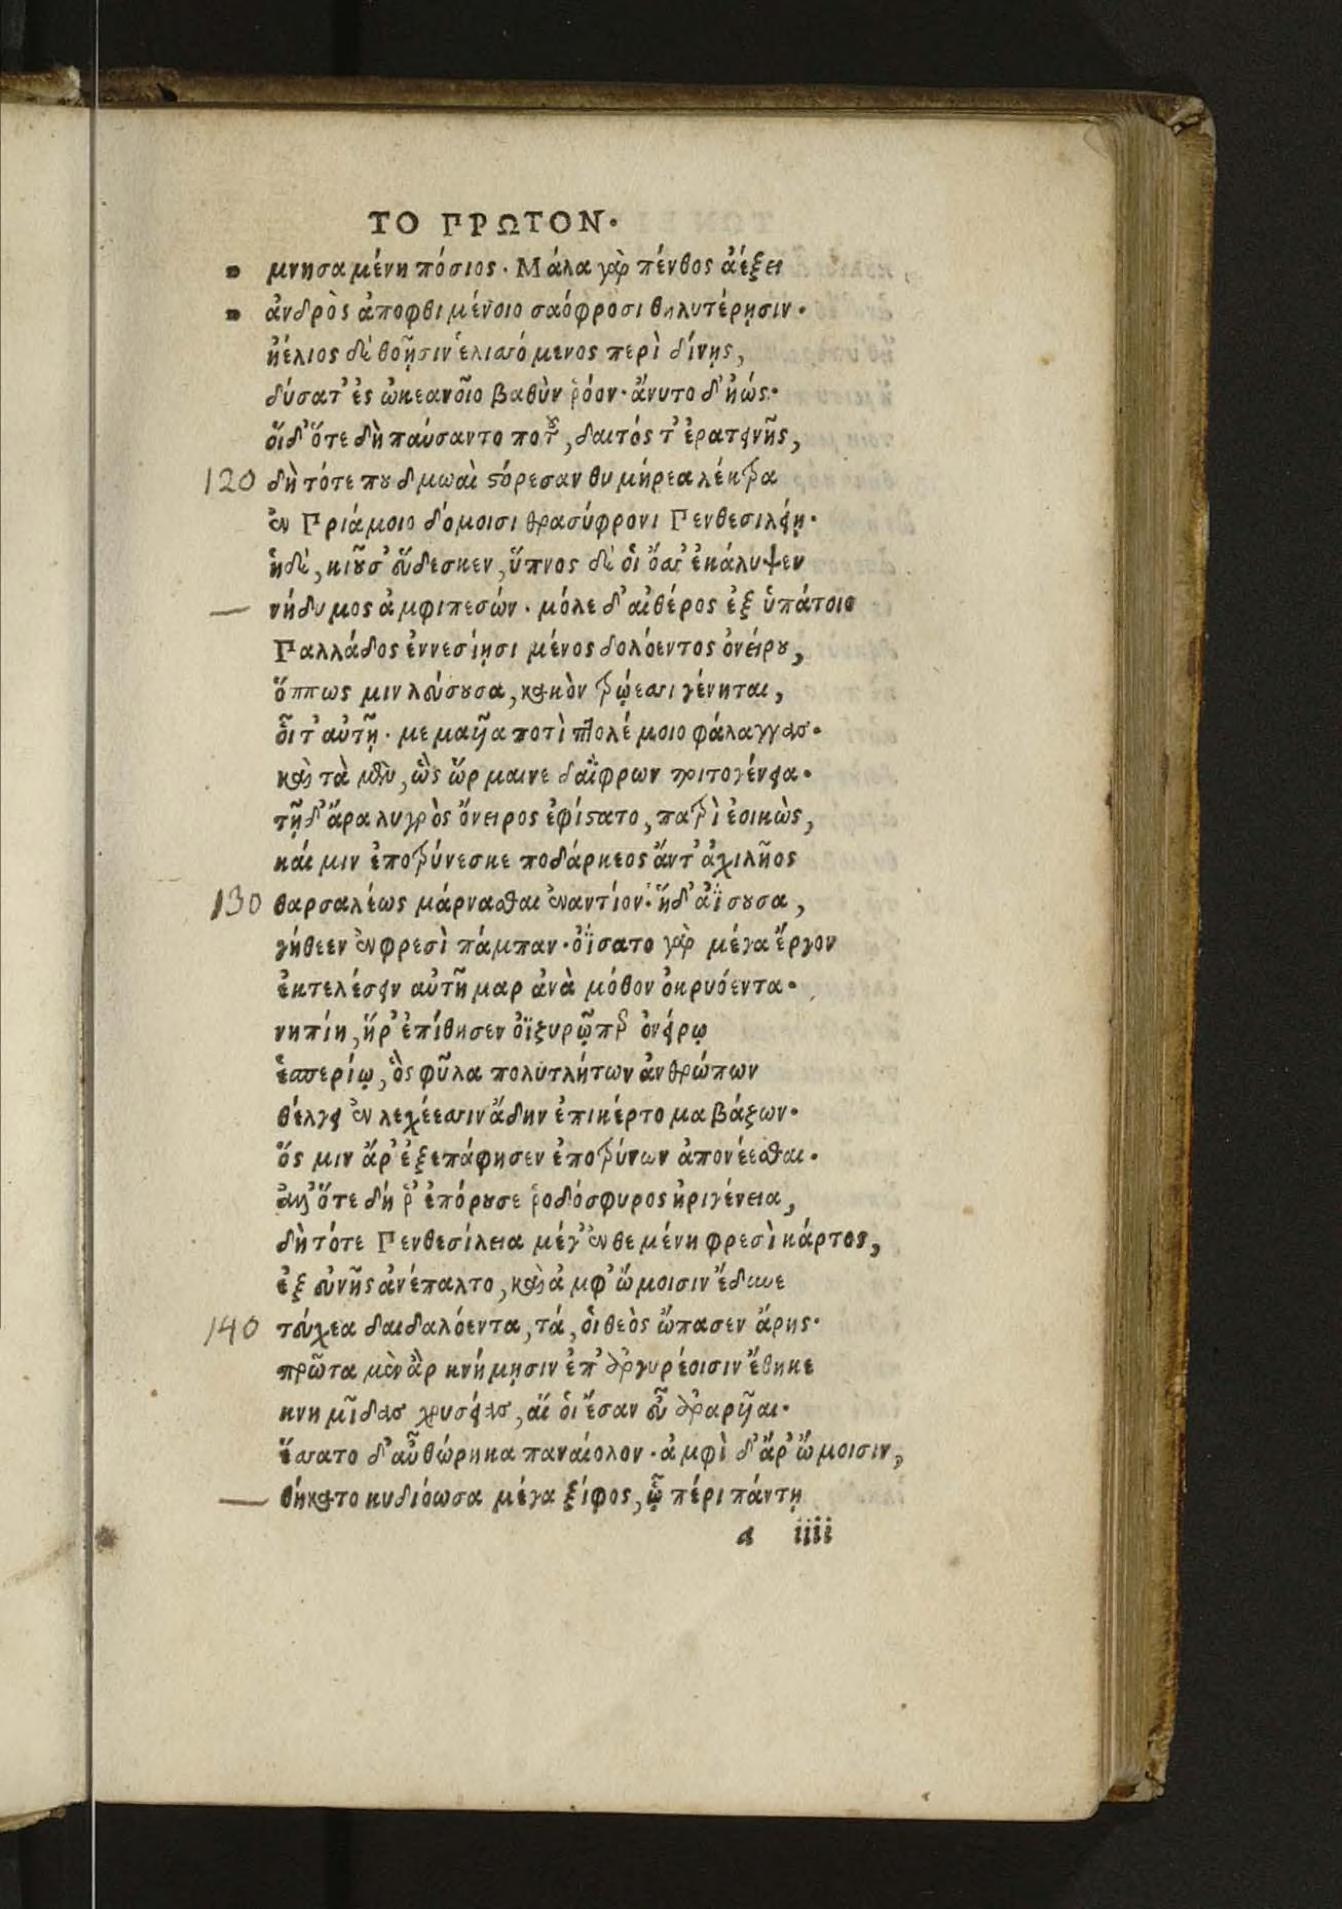 ΤΟ ΠΡΩΤΟΝ.
μνησαμένη πόσιος. Μάλα γὰρ πένθος ἀέξει
ἀνδρὸς ἀποφθιμένοιο σαόφροσι θηλυτέρῃσιν.
ἠέλιος δὲ θοῇσιν ἑλισσόμενος περὶ δίνῃς,
δύσατ' ἐς ὠκεανοῖο βαθὺν ῥόον. ἄνυτο δ' ἠώς.
οἵδ' ὅτε δὴ παύσαντο ποτοῦ, δαιτός τ' ἐρατεινῆς,
120 δὴ τότε που δμωαὶ στόρεσαν θυμήρεα λέκτρα
ἐν Πριάμοιο δόμοισι θρασύφρονι Πενθεσιλείῃ.
ἡδὲ, κιοῦσ' εὕδεσκεν, ὕπνος δέ οἱ ὄσσ' ἐκάλυψεν
νήδυμος ἀμφιπεσών. μόλε δ' αἰθέρος ἐξ ὑπάτοιο
Παλλάδος ἐννεσίῃσι μένος δολόεντος ὀνείρου,
ὅππως μιν λεύσουσα, κακὸν τρώεσσι γένηται,
οἷ τ' αὐτῇ. μεμαυῖα ποτὶ πτολέμοιο φάλαγγας.
καὶ τὰ μὲν, ὣς ὥρμαινε δαΐφρων τριτογένεια.
τῇ δ' ἄρα λυγρὸς ὄνειρος ἐφίστατο, πατρὶ ἐοικὼς,
καί μιν ἐποτρύνεσκε ποδάρκεος ἄντ' ἀχιλῆος
130 θαρσαλέως μάρνασθαι ἐναντίον. ἥδ' ἀΐσουσα,
γήθεεν ἐν φρεσὶ πάμπαν. ὀΐσατο γὰρ μέγα ἔργον
ἐκτελέσειν αὐτῆμαρ ἀνὰ μόθον ὀκρυόεντα.
νηπίη, ἥρ' ἐπίθησεν ὀϊξυρῷ περ ὀνείρῳ
ἑσπερίῳ, ὃς φῦλα πολυτλήτων ἀνθρώπων
θέλγει ἐν λεχέεσσιν ἄδην ἐπικέρτομα βάζων.
ὅς μιν ἄρ' ἐξεπάφησεν ἐποτρύνων ἀπονέεσθαι.
ἀλλ' ὅτε δή ῥ' ἐπόρουσε ῥοδόσφυρος ἠριγένεια,
δὴ τότε Πενθεσίλεια μέγ' ἐνθεμένη φρεσὶ κάρτος,
ἐξ εὐνῆς ἀνέπαλτο, καὶ ἀμφ' ὤμοισιν ἔδυσε
140 τεύχεα δαιδαλόεντα, τά, οἱ θεὸς ὤπασεν ἄρης.
πρῶτα μὲν ἂρ κνήμῃσιν ἐπ' ἀργυρέοισιν ἔθηκε
κνημῖδας χρυσείας, αἵ οἱ ἔσαν εὖ ἀραρυῖαι.
ἕσσατο δ' αὖ θώρηκα παναίολον. ἀμφὶ δ' ἄρ' ὤμοισιν,
θήκατο κυδιόωσα μέγα ξίφος, ᾧ πέρι πάντῃ
a iiii